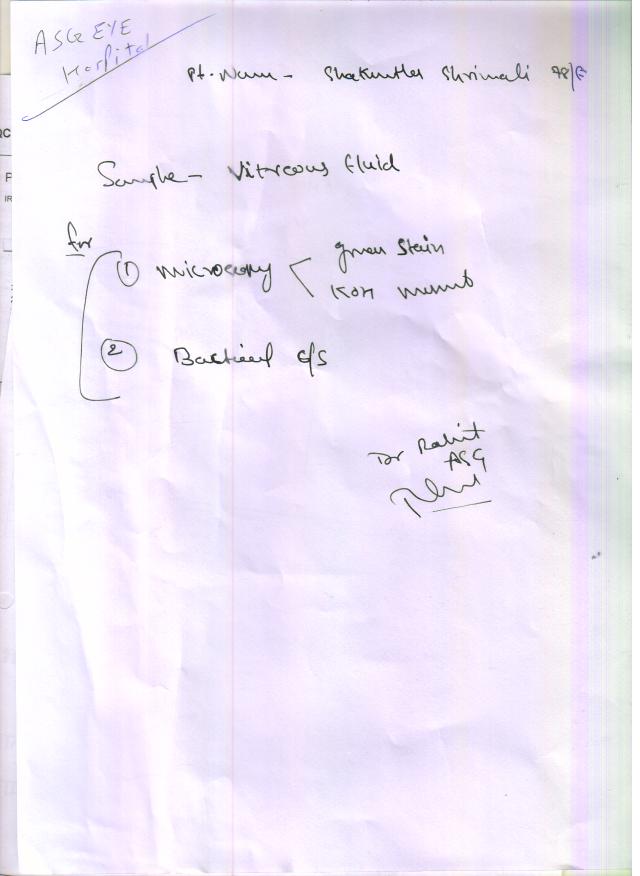 ASG EYE
Hospital
Pt. Name - Shakuntla Shrimali 78/F
Sample - Vitreous fluid
for
① Microscopy < gram stain
KOH mount
② Bacterial c/s
Dr Rohit
ASG